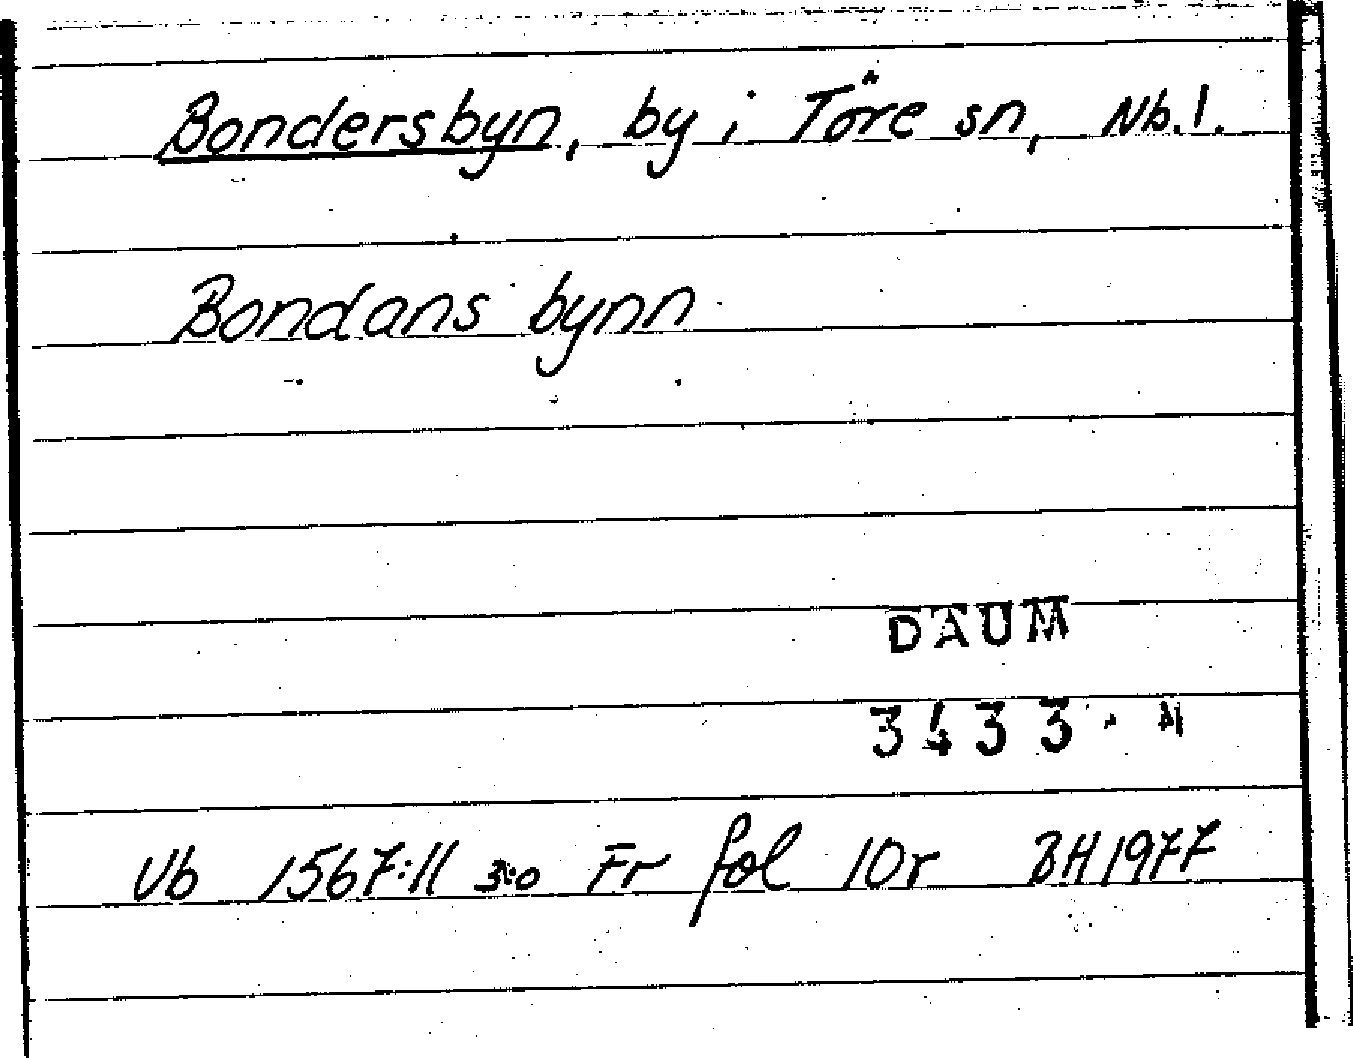 Bondersbyn, by i Töre sn, Nb.l.
Bondans bynn
DAUM
3433
Vb 1567:11 3:o Fr fol 10r BH 1977